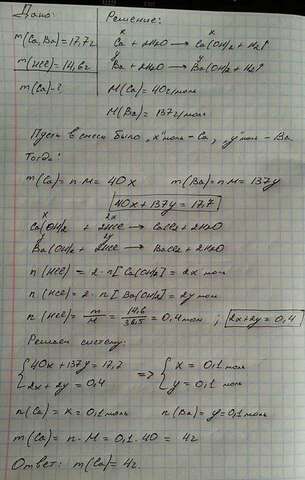 Дано:
Решение:
m(Ca, Ba) = 17,7г
m(HCl) = 14,6г
m(Ca) - ?
x
Ca + 2H2O → Ca(OH)2 + H2↑
y
Ba + 2H2O → Ba(OH)2 + H2↑
M(Ca) = 40г/моль
M(Ba) = 137г/моль
Пусть в смеси было „x" моль - Ca, „y" моль - Ba
Тогда:
m(Ca) = n·M = 40x m(Ba) = n·M = 137y
40x + 137y = 17,7
x 2x
Ca(OH)2 + 2HCl → CaCl2 + 2H2O
y 2y
Ba(OH)2 + 2HCl → BaCl2 + 2H2O
n(HCl) = 2·n[Ca(OH)2] = 2x моль
n(HCl) = 2·n[Ba(OH)2] = 2y моль
n(HCl) = m/M = 14,6/36,5 = 0,4 моль ; 2x + 2y = 0,4
Решаем систему:
{ 40x + 137y = 17,7 => { x = 0,1 моль
2x + 2y = 0,4 y = 0,1 моль
n(Ca) = x = 0,1 моль n(Ba) = y = 0,1 моль
m(Ca) = n·M = 0,1·40 = 4г
Ответ: m(Ca) = 4г.